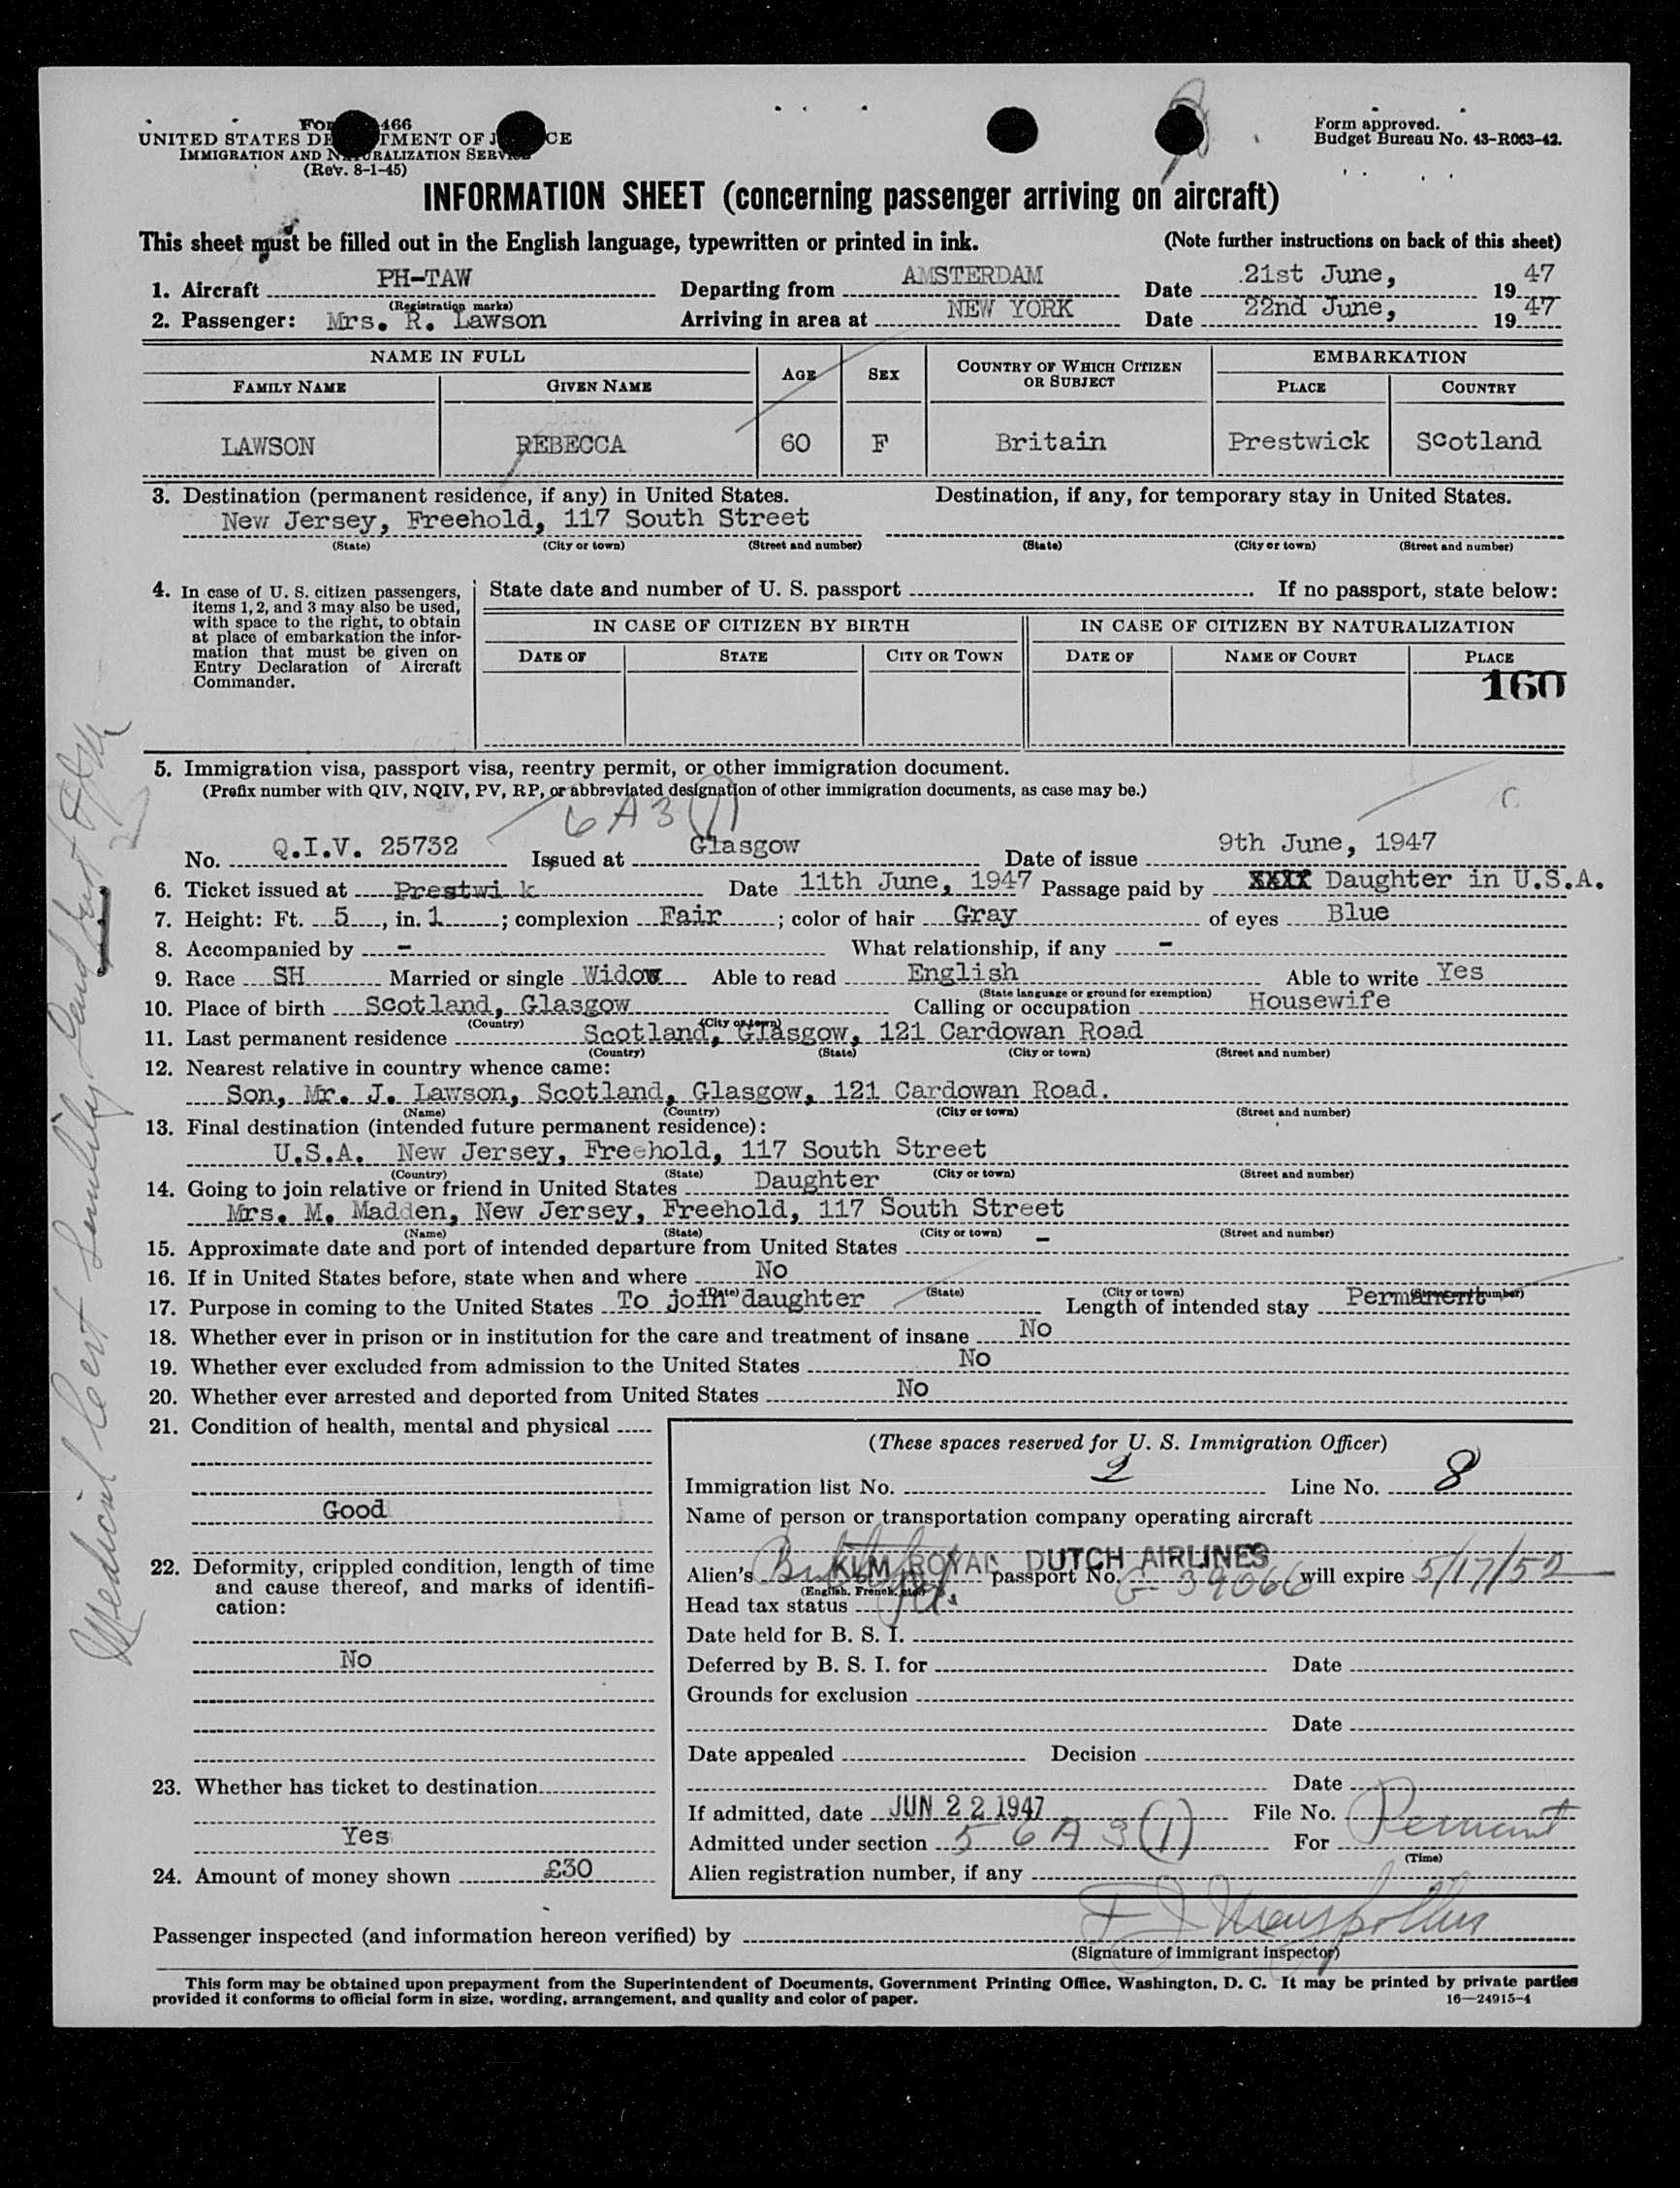 Form 466
UNITED STATES DEPARTMENT OF JUSTICE
IMMIGRATION AND NATURALIZATION SERVICE
(Rev. 8-1-45)
Form approved.
Budget Bureau No. 43-R063-42.
INFORMATION SHEET (concerning passenger arriving on aircraft)
This sheet must be filled out in the English language, typewritten or printed in ink. (Note further instructions on back of this sheet)
1. Aircraft PH-TAW Departing from AMSTERDAM Date 21st June, 1947
(Registration marks)
2. Passenger: Mrs. R. Lawson Arriving in area at NEW YORK Date 22nd June, 1947
NAME IN FULL AGE SEX COUNTRY OF WHICH CITIZEN OR SUBJECT EMBARKATION
FAMILY NAME GIVEN NAME PLACE COUNTRY
LAWSON REBECCA 60 F Britain Prestwick Scotland
3. Destination (permanent residence, if any) in United States. Destination, if any, for temporary stay in United States.
New Jersey, Freehold, 117 South Street
(State) (City or town) (Street and number) (State) (City or town) (Street and number)
4. In case of U. S. citizen passengers,
items 1, 2, and 3 may also be used,
with space to the right, to obtain
at place of embarkation the infor-
mation that must be given on
Entry Declaration of Aircraft
Commander.
State date and number of U. S. passport If no passport, state below:
IN CASE OF CITIZEN BY BIRTH IN CASE OF CITIZEN BY NATURALIZATION
DATE OF STATE CITY OR TOWN DATE OF NAME OF COURT PLACE
160
5. Immigration visa, passport visa, reentry permit, or other immigration document.
(Prefix number with QIV, NQIV, PV, RP, or abbreviated designation of other immigration documents, as case may be.)
6 A 3 (1)
No. Q.I.V. 25732 Issued at Glasgow Date of issue 9th June, 1947
6. Ticket issued at Prestwi k Date 11th June, 1947 Passage paid by XXXX Daughter in U.S.A.
7. Height: Ft. 5, in. 1; complexion Fair; color of hair Gray of eyes Blue
8. Accompanied by - What relationship, if any -
9. Race SH Married or single Widow Able to read English Able to write Yes
(State language or ground for exemption)
10. Place of birth Scotland, Glasgow Calling or occupation Housewife
(Country) (City or town)
11. Last permanent residence Scotland, Glasgow, 121 Cardowan Road
(Country) (State) (City or town) (Street and number)
12. Nearest relative in country whence came:
Son, Mr. J. Lawson, Scotland, Glasgow, 121 Cardowan Road.
(Name) (Country) (City or town) (Street and number)
13. Final destination (intended future permanent residence):
U.S.A. New Jersey, Freehold, 117 South Street
(Country) (State) (City or town) (Street and number)
14. Going to join relative or friend in United States Daughter
Mrs. M. Madden, New Jersey, Freehold, 117 South Street
(Name) (State) (City or town) (Street and number)
15. Approximate date and port of intended departure from United States -
16. If in United States before, state when and where No
(Date) (State) (City or town) (Street and number)
17. Purpose in coming to the United States To join daughter Length of intended stay Permanent
18. Whether ever in prison or in institution for the care and treatment of insane No
19. Whether ever excluded from admission to the United States No
20. Whether ever arrested and deported from United States No
21. Condition of health, mental and physical
Good
22. Deformity, crippled condition, length of time
and cause thereof, and marks of identifi-
cation:
No
23. Whether has ticket to destination
Yes
24. Amount of money shown £30
(These spaces reserved for U. S. Immigration Officer)
Immigration list No. 2 Line No. 8
Name of person or transportation company operating aircraft
KLM ROYAL DUTCH AIRLINES
Alien's passport No. G-39066 will expire 5/17/52
(English, French, etc.)
Head tax status
Date held for B. S. I.
Deferred by B. S. I. for Date
Grounds for exclusion
Date
Date appealed Decision
Date
If admitted, date JUN 22 1947 File No.
Admitted under section 5 6 A 3 (1) For Permanent
(Time)
Alien registration number, if any
Passenger inspected (and information hereon verified) by
(Signature of immigrant inspector)
This form may be obtained upon prepayment from the Superintendent of Documents, Government Printing Office, Washington, D. C. It may be printed by private parties
provided it conforms to official form in size, wording, arrangement, and quality and color of paper.
16—24915-4
Medical Cert